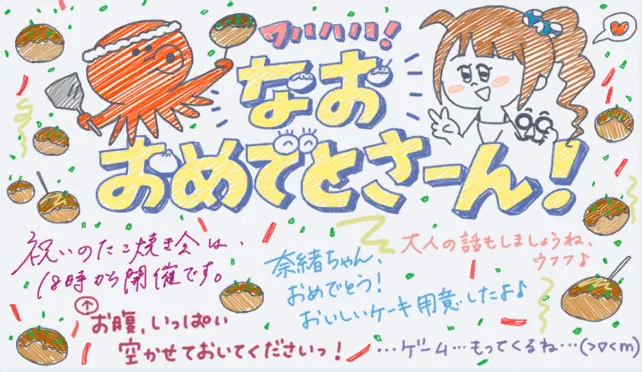 ワハハハ!
なお
おめでとさーん!
祝いのたこ焼き会は、
18時から開催です。
↑
お腹、いっぱい
空かせておいてくださいっ!
奈緒ちゃん、
おめでとう!
おいしいケーキ用意したよ♪
大人の話もしましょうね、
ウフフ♪
…ゲーム…もってくるね…(>▽<m)